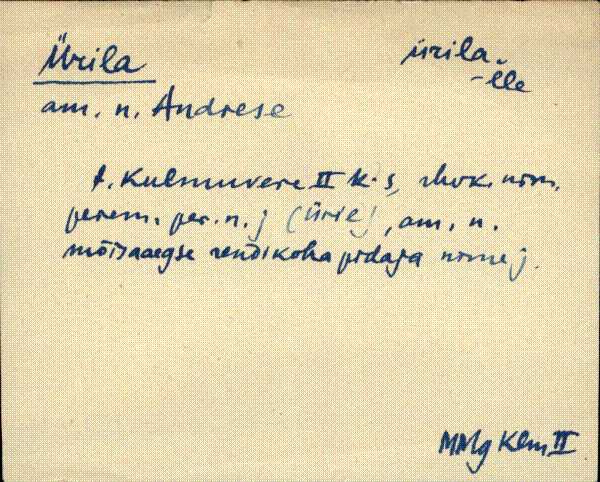 Ürila
ürila,
-lle
am. n. Andrese
t. Kulmuvere II k. s, rhvk. nim.
perem. per. n. j (Ürie), am. n.
mõisaaegse rendikoha pidaja nime j.
MMg Klm II